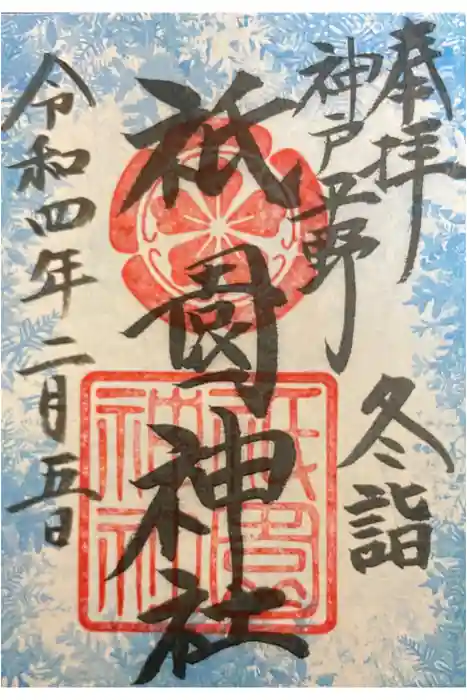 奉拝
神戸平野
冬詣
祇園神社
令和四年二月五日
祇園神社